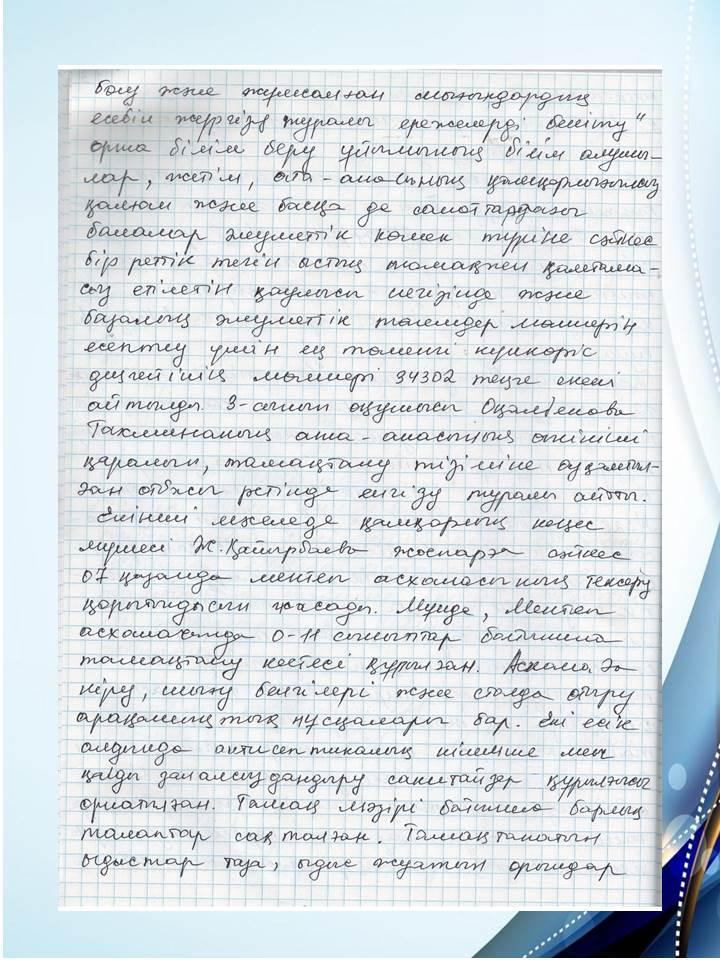 болу және жұмсалған шығындардың
есебін жүргізу туралы ережелерді бекіту"
орта білім беру ұйымының білім алушы-
лар, жетім, ата-анасының қамқорлығынсыз
қалған және басқа де санаттардағы
балалар әлуметтік көмек түріне сәйкес
бір реттік тегін ыстық тамақпен қамтама-
сыз етілетін қаулысы негізінде және
базалық әлуметтік төлемдер мөлшерін
есептеу үшін ең төменгі күнкөріс
деңгейінің мөлшері 34302 теңге екені
айтылды. 3-сынып оқушысы
Тахминаның ата-анасының өтініші
қаралып, тамақтану тізіміне
отбасы ретінде енгізу туралы айтты.
Екінші мәселеде қамқорлық кеңес
мүшесі Ж.Қайырбаева жоспарға сәйкес
07 қазанда мектеп асханасының тексеру
қорытындысын жасады. Мұнда, Мектеп
асханасында 0-11 сыныптар бойынша
тамақтану кестесі құрылған. Асханаға
кіру, шығу белгілері және столда отыру
арақашықтық нұсқалары бар. Екі есік
алдында антисептикалық кілемше мен
қолды залалсыздандыру санитайзер құрылғысы
орнатылған. Тамақ мәзірі бойынша барлық
талаптар сақталған. Тамақтанатын
ыдыстар таза, ыдыс жуатын орындар